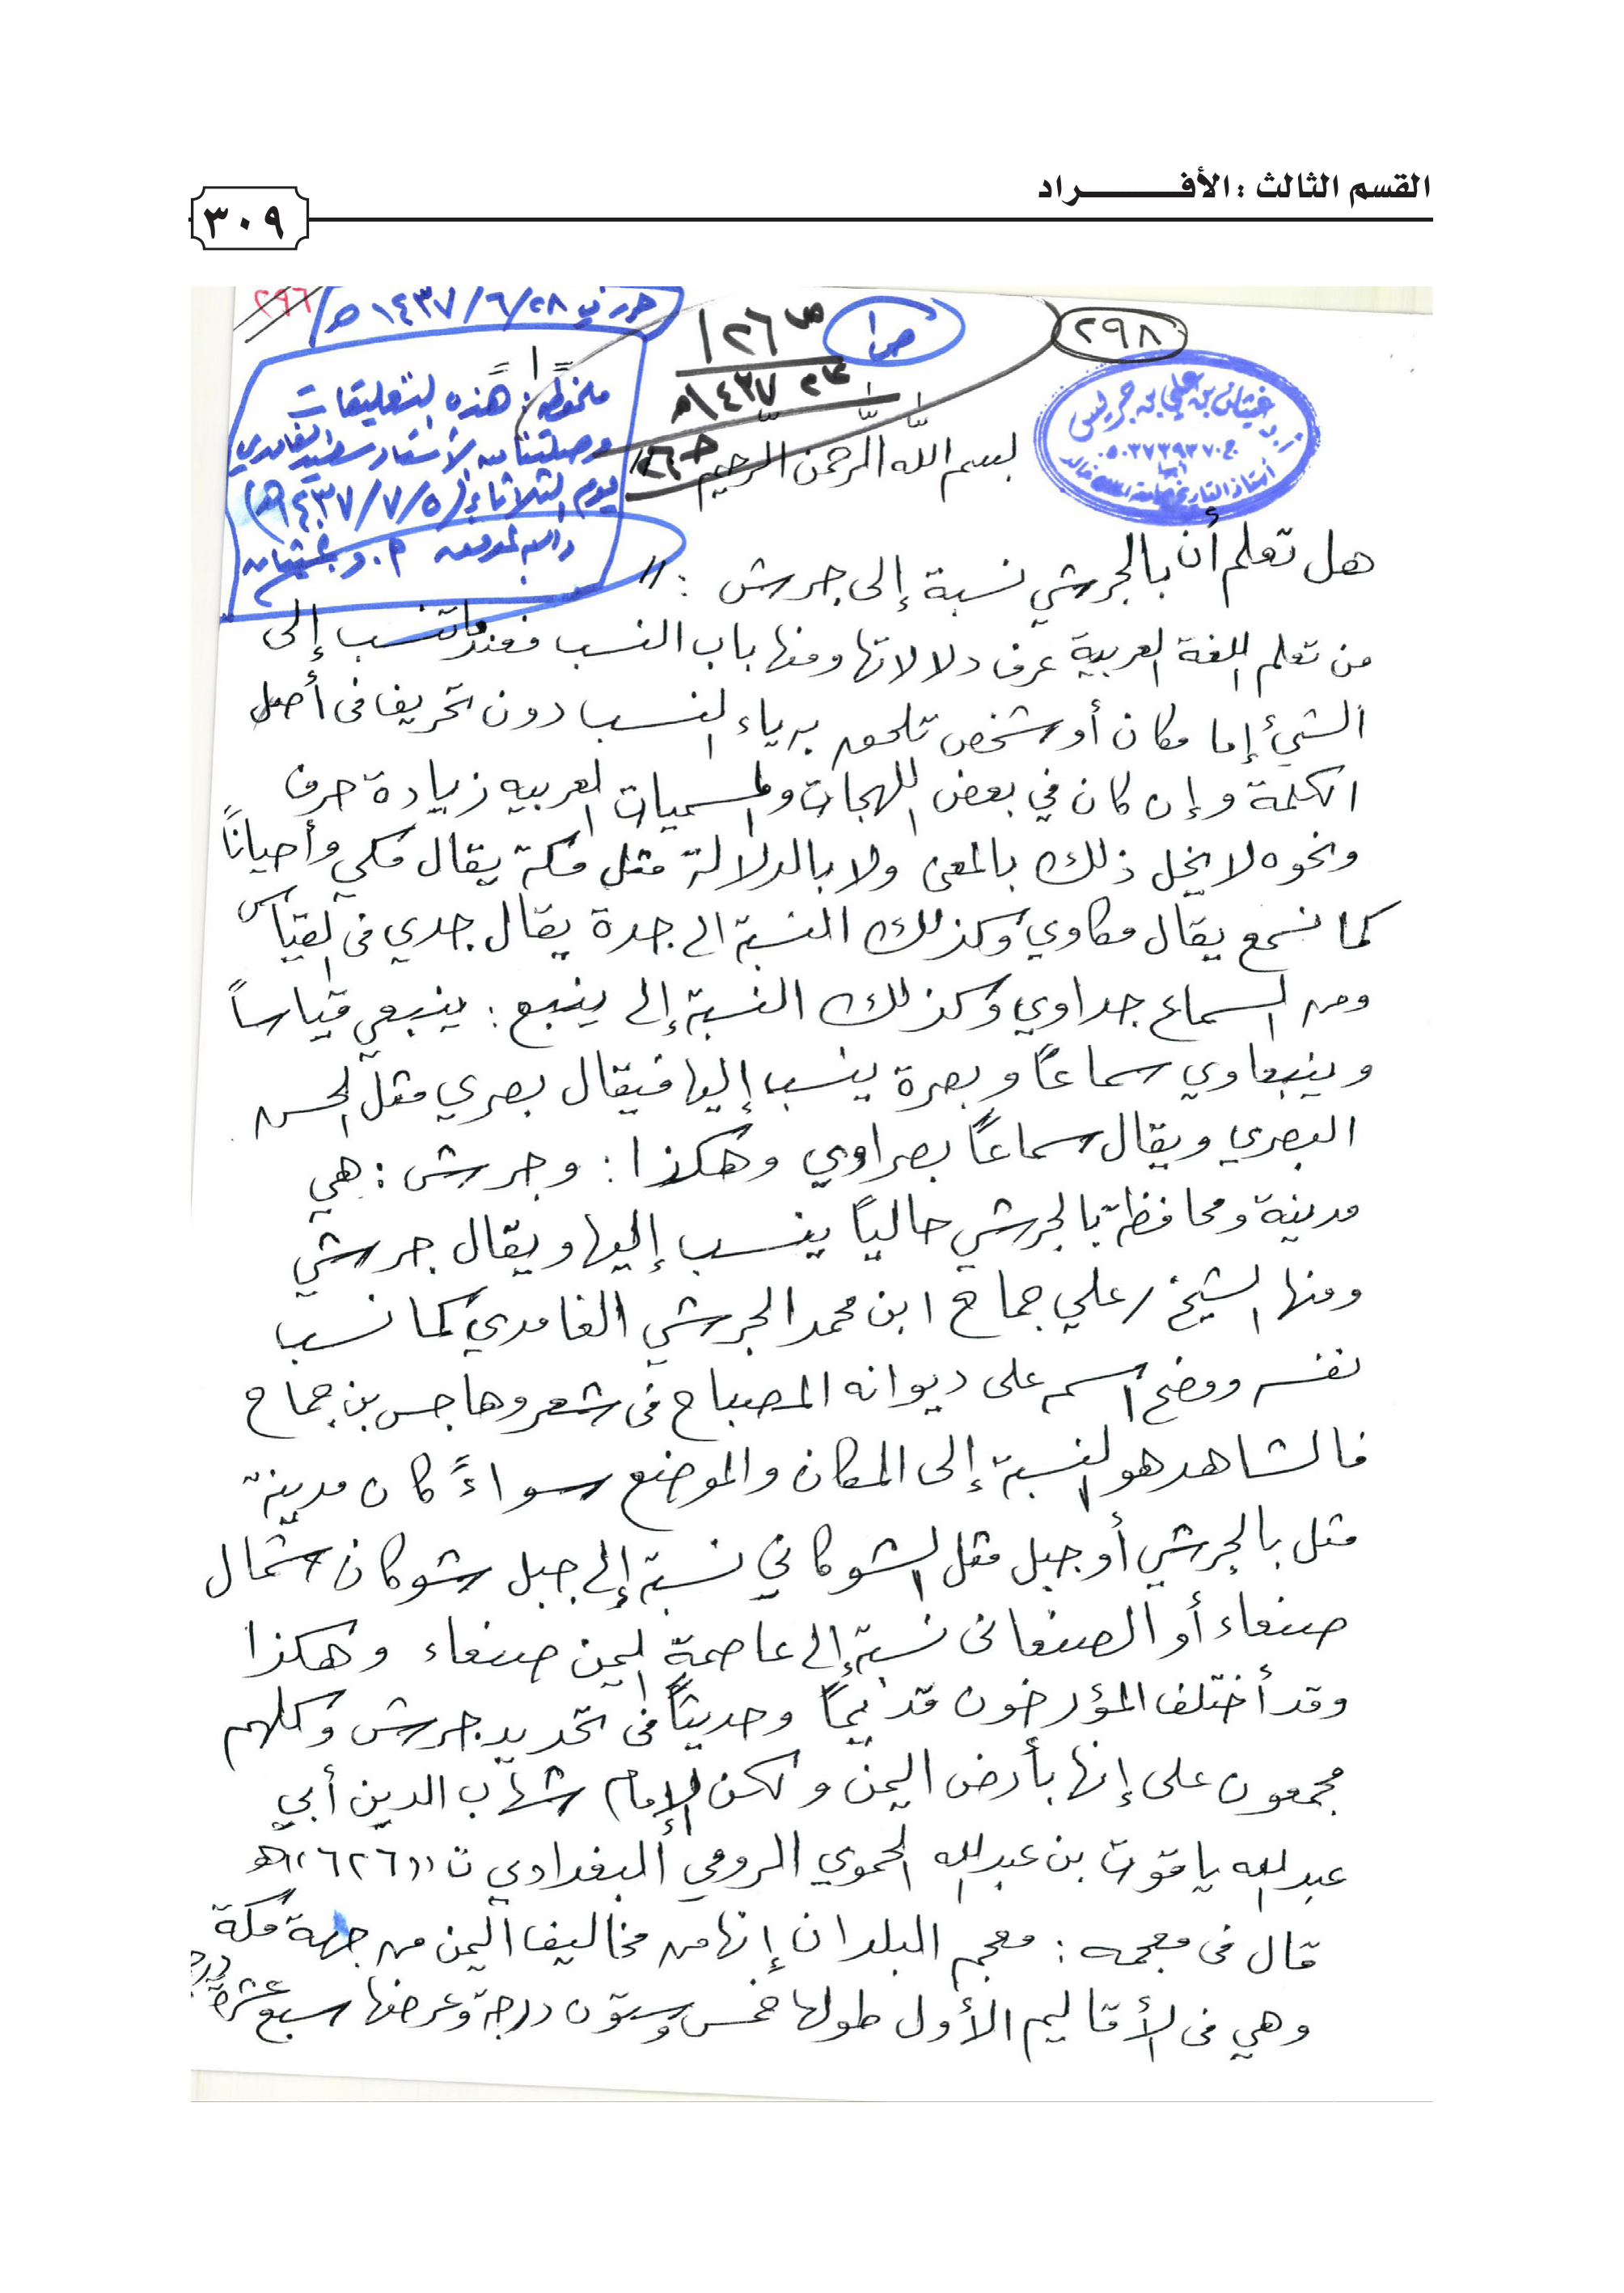 القسم الثالث : الأفـــــراد
٣٠٩
٢٩٦
حرر في ١٤٣٧/٦/٢٨هـ
ص١
٢٩٨
ملحوظة: هذه التعليقات
وصلتنا من الأستاذ سعيد الغامدي
يوم الثلاثاء (١٤٣٧/٧/٥هـ)
والله الموفق أ.د. غيثان
أ.د. غيثان بن علي بن جريس
ج ٠٥٠٣٧٣٩٣٧٠
أبها
أستاذ التاريخ بجامعة الملك خالد
بسم الله الرحمن الرحيم
هل تعلم أن بالجرشي نسبة إلى جرش :
من تعلم اللغة العربية عرف دلالاتها ومنها باب النسب فعندما تنسب إلى
الشيئ إما مكان أو شخص تلحق به ياء النسب دون تحريف في أصل
الكلمة وإن كان في بعض اللهجات والمسميات العربيه زيادة حرف
ونحوه لا يخل ذلك بالمعنى ولا بالدلالة مثل مكة يقال مكي وأحياناً
كما نسمع يقال مكاوي وكذلك النسبة الى جدة يقال جدي في القياس
ومن السماع جداوي وكذلك النسبة إلى ينبع : ينبعي قياساً
وينبعاوي سماعاً وبصرة ينسب إليها فيقال بصري مثل الحسن
البصري ويقال سماعاً بصراوي وهكذا : وجرش : هي
مدينة ومحافظة بالجرشي حالياً ينسب إليها ويقال جرشي
ومنها الشيخ / علي جماح ابن محمد الجرشي الغامدي كما نسب
نفسه ووضح اسمه على ديوانه المصباح في شعر وهاجس بن جماح
فالشاهد هو النسبة إلى المكان والموضع سواءً كان مدينة
مثل بالجرشي أو جبل مثل الشوكاني نسبة إلى جبل شوكان شمال
صنعاء أو الصنعاني نسبة إلى عاصمة اليمن صنعاء وهكذا
وقد أختلف المؤرخون قديماً وحديثاً في تحديد جرش وكلهم
مجمعون على إنها بأرض اليمن ولكن الإمام شهاب الدين أبي
عبدالله ياقوت بن عبدالله الحموي الرومي البغدادي ت ((٦٢٦))هـ
قال في معجمه : معجم البلدان إنها من مخاليف اليمن من جهة مكة
وهي في الأقاليم الأول طولها خمس وستون درجة وعرضها سبع عشرة